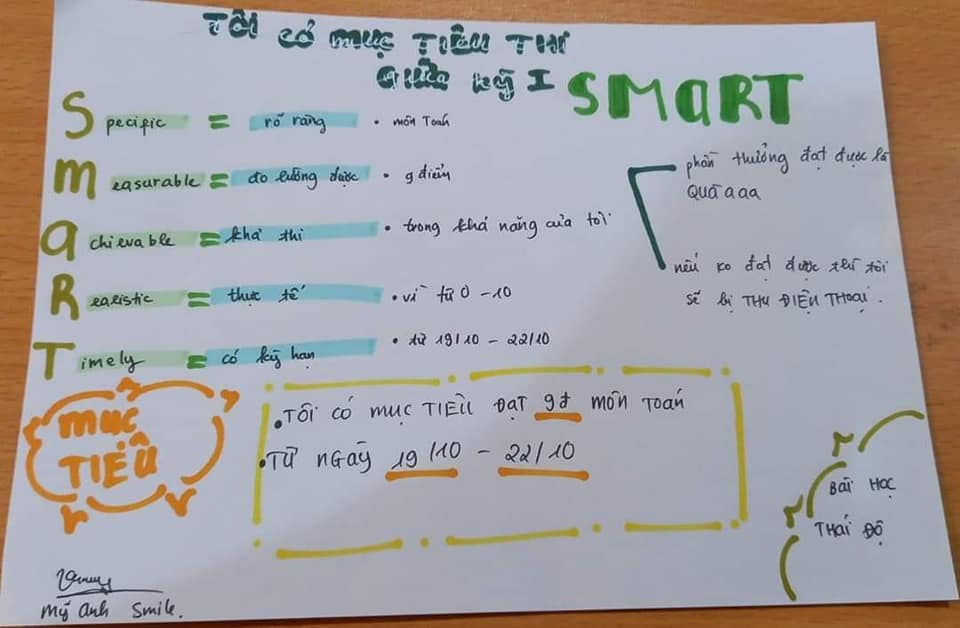 TÔI CÓ MỤC TIÊU THI
GIỮA KỲ I SMART
Specific = rõ ràng • môn Toán
Measurable = đo lường được • 9 điểm
Achievable = khả thi • trong khả năng của tôi
Realistic = thực tế • vì từ 0 - 10
Timely = có kỳ hạn • từ 19/10 - 22/10
phần thưởng đạt được là
QUÀ aaa
nếu ko đạt được thì tôi
sẽ bị THU ĐIỆN THOẠI.
MỤC
TIÊU
• TÔI CÓ MỤC TIÊU ĐẠT 9đ MÔN TOÁN
• TỪ NGÀY 19/10 - 22/10
BÀI HỌC
THÁI ĐỘ
Mỹ Anh Smile.